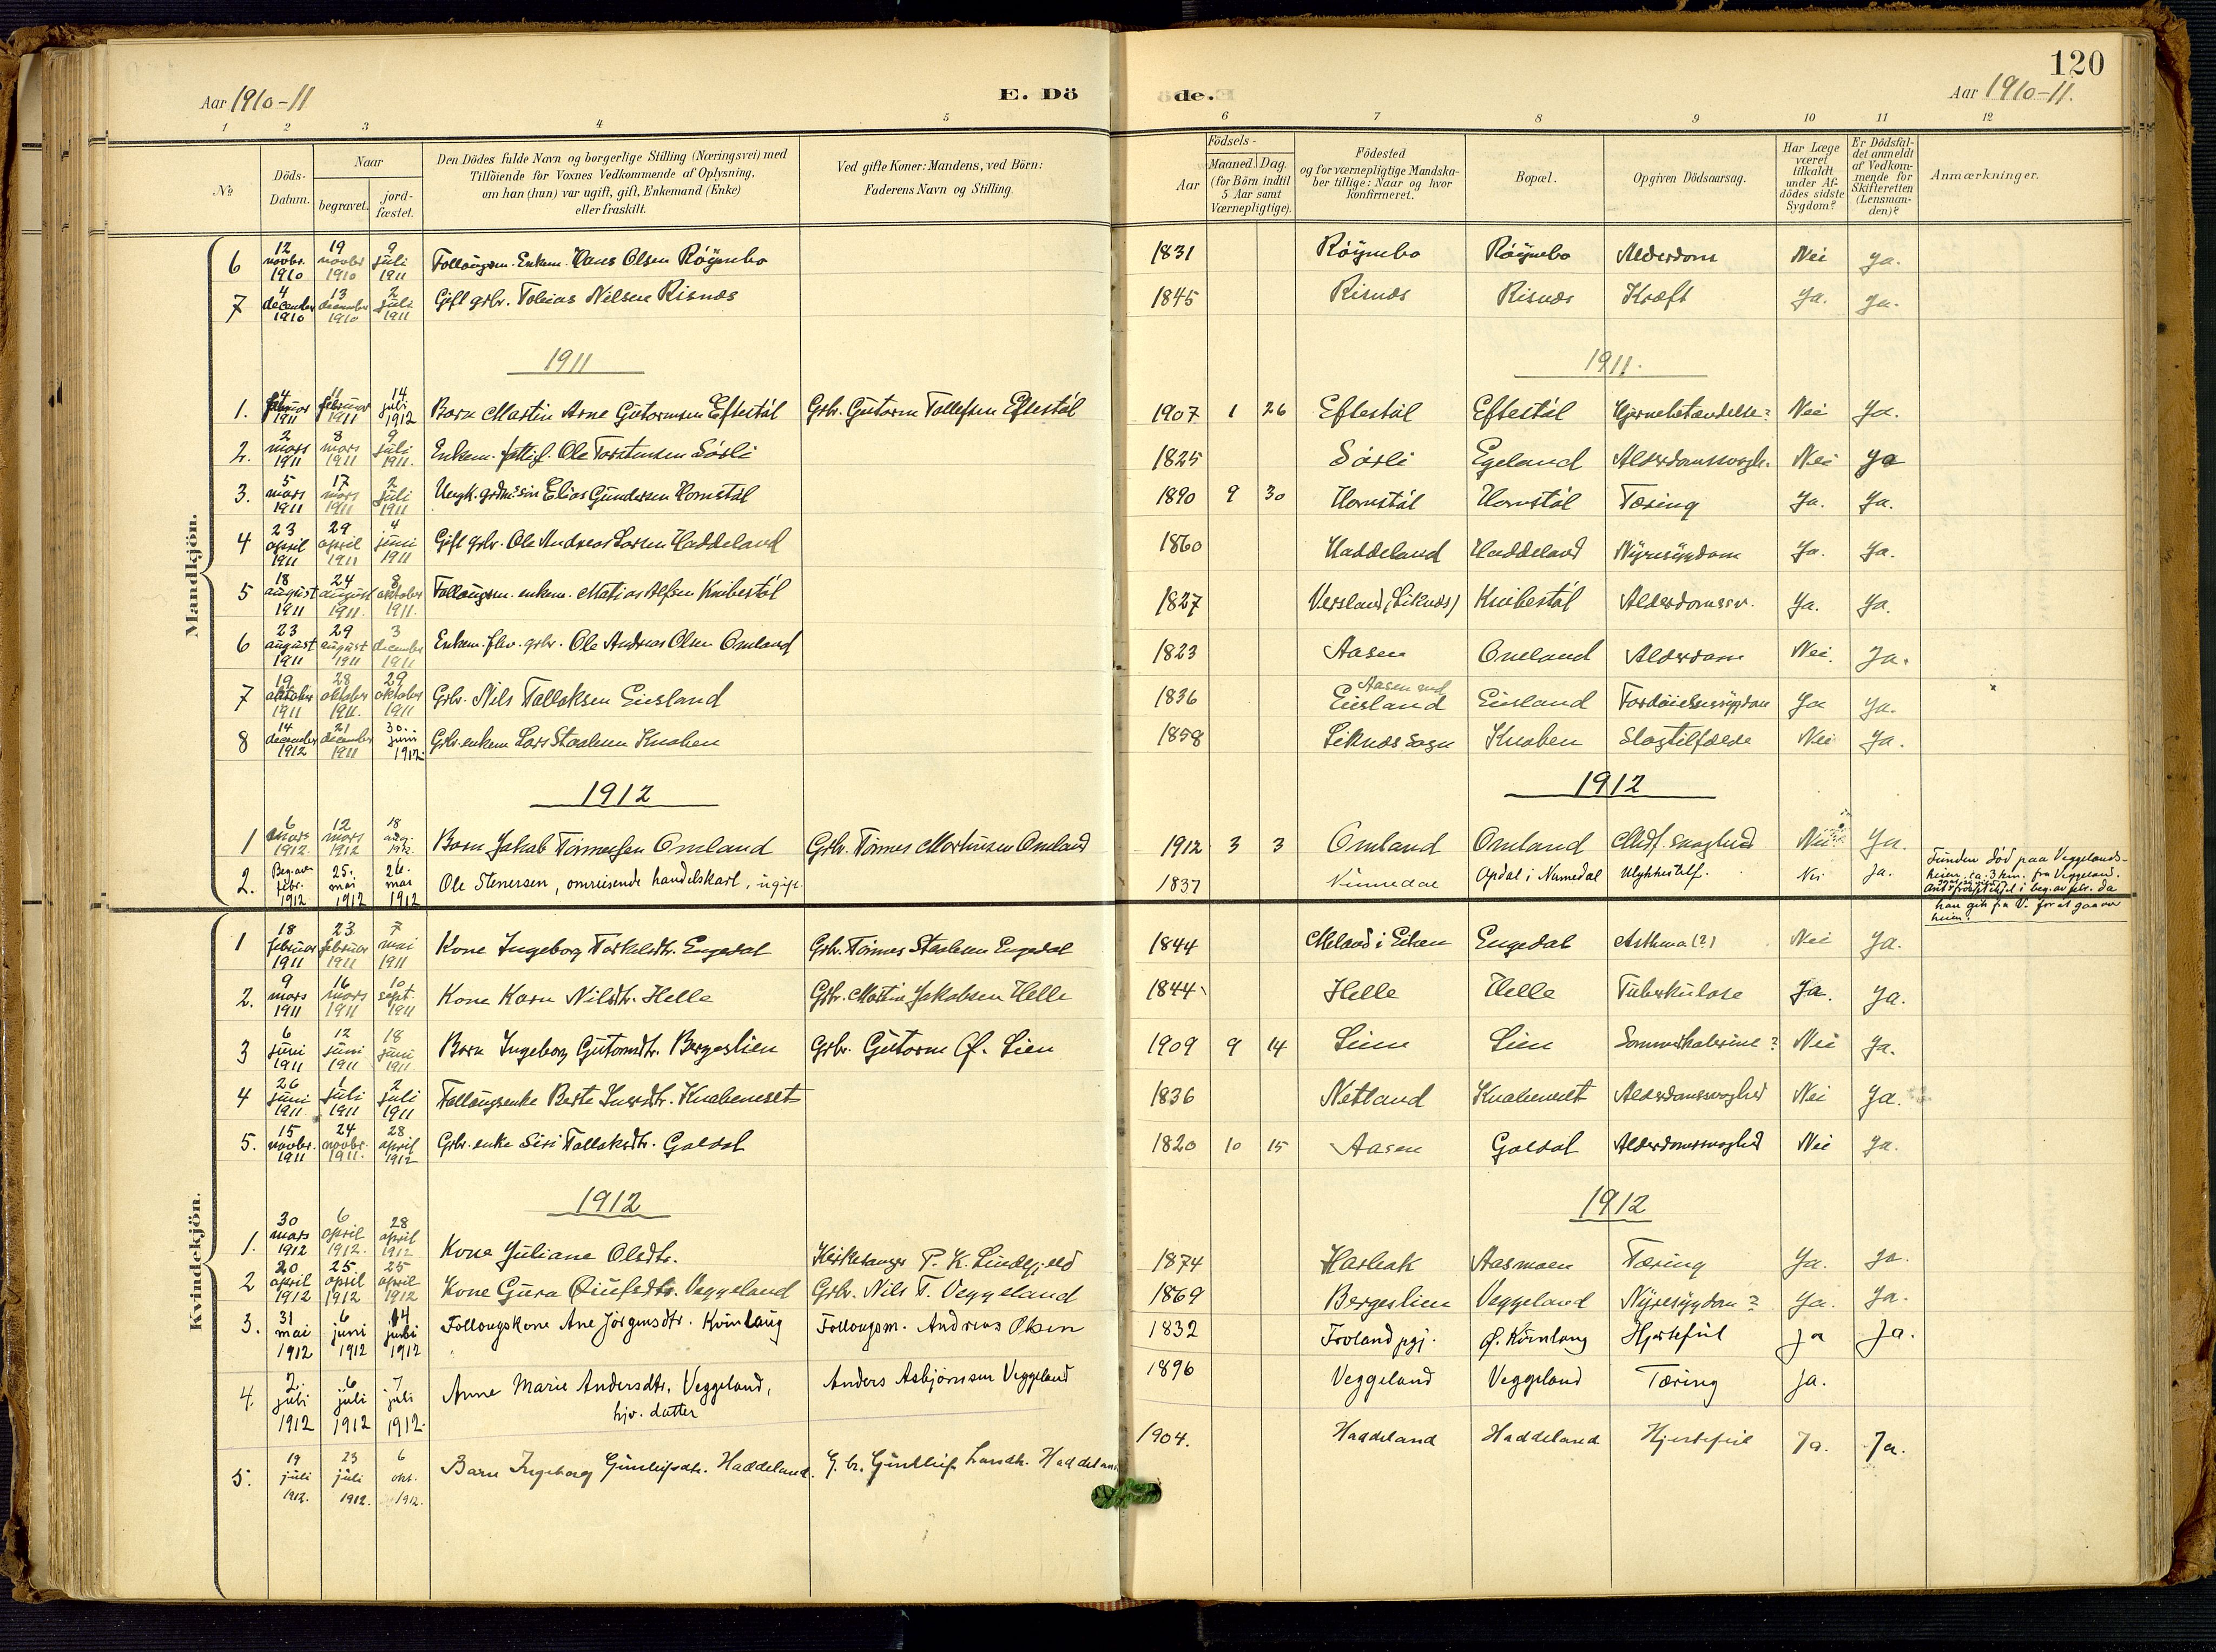 120
Aar 1910-11
E. Dö
de.
Aar 1910-11.
1 2 3 4 5 6 7 8 9 10 11 12
No
Döds-Datum.
Naar
begravet.
jord-fæstet.
Den Dödes fulde Navn og borgerlige Stilling (Næringsvei) med
Tilföiende for Voxnes Vedkommende af Oplysning,
om han (hun) var ugift, gift, Enkemand (Enke)
eller fraskilt.
Ved gifte Koner: Mandens, ved Börn:
Faderens Navn og Stilling.
Aar
Födsels-
Maaned. Dag.
(for Börn indtil
5 Aar samt
Værnepligtige).
Födested
og for værnepligtige Mandska-
ber tillige: Naar og hvor
konfirmeret.
Bopæl.
Opgiven Dödsaarsag.
Har Læge
været
tilkaldt
under Af-
dödes sidste
Sygdom?
Er Dödsfal-
det anmeldt
af Vedkom-
mende for
Skifteretten
(Lensman-
den)?
Anmærkninger.
Mandkjön.
6 12 novbr. 1910 19 novbr 1910 9 juli 1911 Enkem. Hans Olsen Röynebo 1831 Röynebo Röynebo Alderdom Nei Ja.
7 4 december 1910 13 december 1910 2 juli 1911 Gift grbr. Tobias Nilsen Risnes 1845 Risnes Risnes Kræft Ja. Ja.
1911
1911.
1. 4 februar 1911 11 februar 1911 14 juli 1912 Barn Martin Arne Gutormsen Eftestöl Grbr. Gutorm Tollefsen Eftestöl 1907 1 26 Eftestöl Eftestöl Hjernebetændelse? Nei Ja.
2. 2 mars 1911 8 mars 1911 9 juli 1911. Enkem. fattigl. Ole Torstensen Sörli 1825 Sörli Egeland Alderdomssvagh. Nei Ja
3. 5 mars 1911 17 mars 1911 2 juli 1911 Ungk. grdm. sön Elias Gundersen Homstöl 1890 9 30 Homstöl Homstöl Tæring Ja. Ja.
4 23 april 1911 29 april 1911 4 juni 1911 Gift grbr. Ole Andreas Larsen Haddeland 1860 Haddeland Haddeland Nyresygdom Ja. Ja.
5 18 august 1911 24 august 1911. 8 oktober 1911. enkem. Matias Alfsen Knibestöl 1827 Versland (Liknes) Knibestöl Alderdomssv. Ja. Ja.
6 23 august 1911 29 august 1911 3 december 1911 Enkem. fhv. grbr. Ole Andreas Olsen Omland 1823 Aasen Omland Alderdom Nei. Ja.
7 19 oktober 1911 28 oktober 1911. 29 oktober 1911 Grbr. Nils Tallaksen Eiesland 1836 Aasen ved Eiesland Eiesland Fordöielsessygdom Ja Ja.
8 14 december 1912 21 december 1911 30. juni 1912. Grbr. enkem Lars Staalesen Knaben 1858 Liknes Sogn Knaben Slagtilfælde Nei Ja.
1912
1912
1 6 mars 1912. 12 mars 1912 18 aug. 1912. Barn Jakob Tönnesen Omland Grbr. Tönnes Martinsen Omland 1912 3 3 Omland Omland Medf. svaghed Nei Ja.
2. Beg. av febr. 1912 25. mai 1912 26. mai 1912 Ole Stenersen, omreisende handelskarl, ugift. 1837 Numedal Opdal i Numedal Ulykkestilf. Nei Ja. Funden död paa Veggelands-
heien, ca. 3 km. fra Veggeland.
i beg. av febr. da
han gik fra V. for at gaa over
heien.
Kvindekjön.
1 18 februar 1911 23 februar 1911 7 mai 1911 Kone Ingeborg Torkeldtr. Engedal Grbr. Tönnes Staalesen Engedal 1844 Meland i Eiken Engedal Asthma (?) Nei Ja.
2. 9 mars 1911 16 mars 1911 10 sept. 1911 Kone Karn Nilsdtr. Helle Grbr. Martin Jakobsen Helle 1844 Helle Helle Tuberkulose Ja. Ja.
3 6 juni 1911 12 juni 1911 18 juni 1911 Barn Ingeborg Gutormdtr. Bergeslien Grbr. Gutorm O. Lien 1909 9 14 Lien Lien Sommerkolerine? Nei Ja.
4 26 juni 1911. 1 juli 1911 2 juli 1911 Follougsenke Berte Iversdtr. Knabeneset 1836 Netland Knabeneset Alderdomssvaghed Nei Ja.
5. 15 novbr. 1911 24 novbr. 1911. 28 april 1912 Grbr. enke Siri Tallaksdtr. Goldal 1820 10 15 Aasen Goldal Alderdomssvaghed Nei Ja.
1912
1912
1. 30 mars 1912 6 april 1912. 28 april 1912 Kone Juliane Olsdtr. Kirkesanger P. K. Lindefjeld 1874 Harbak Aasmoen Tæring Ja. Ja.
2 20 april 1912 25 april 1912 25 april 1912 Kone Guro Veggeland Grbr. Nils T. Veggeland 1869 Bergeslien Veggeland Nyresygdom? Ja. Ja.
3. 31 mai 1912 6 juni 1912 14 juli 1912 Follougskone Ane Jörgensdtr. Kvinlaug Follougsm. Andreas Olsen 1832 Froland pgj. Ö. Kvinlaug Hjertefeil Ja Ja.
4. 2. juli 1912 6 juli 1912 7 juli 1912. Anne Marie Andersdtr. Veggeland,
hjv. datter Anders Asbjörnsen Veggeland 1896 Veggeland Veggeland Tæring Ja.
5. 19 juli 1912. 23 juli 1912. 6 okt. 1912. Barn Ingeborg Gunleifsdtr. Haddeland. G. br. Gunleif Haddeland 1904. Haddeland Haddeland Hjertefeil Ja. Ja.